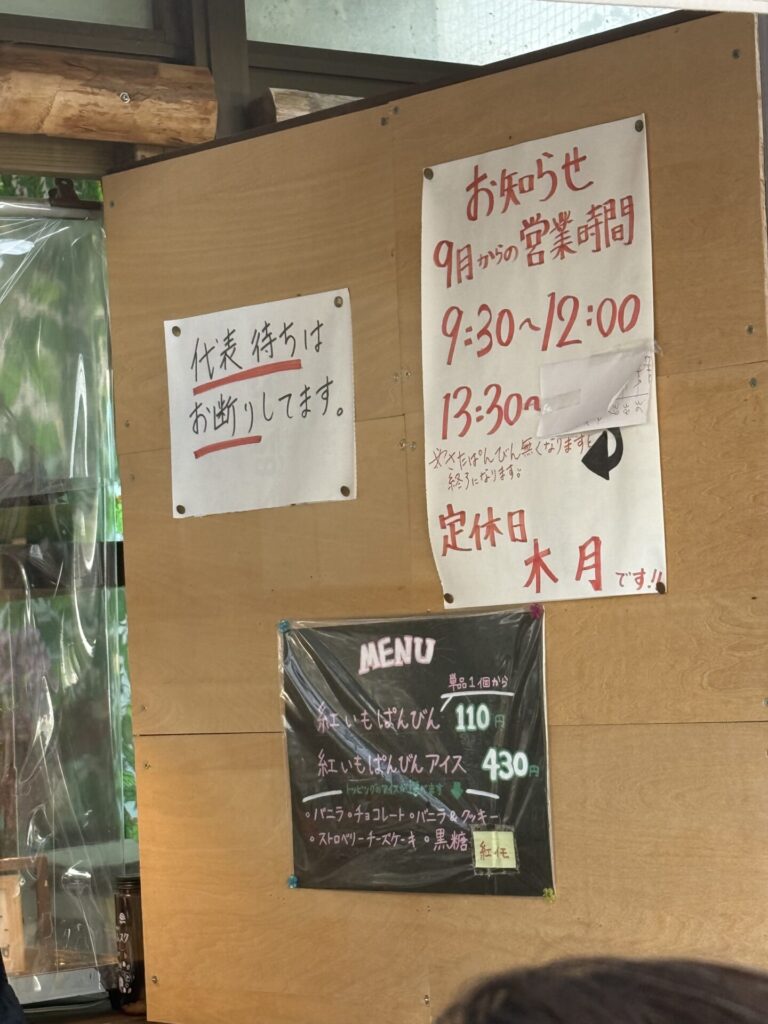 代表待ちは
お断りしてます。
お知らせ
9月からの営業時間
9:30〜12:00
13:30〜
無くなりますと
終了になります。
定休日
木月です!!
MENU
単品1個から
紅いもぱんびん 110円
紅いもぱんびんアイス 430円
トッピングのアイスが
・バニラ・チョコレート・バニラ&クッキー
・ストロベリーチーズケーキ・黒糖
紅イモ